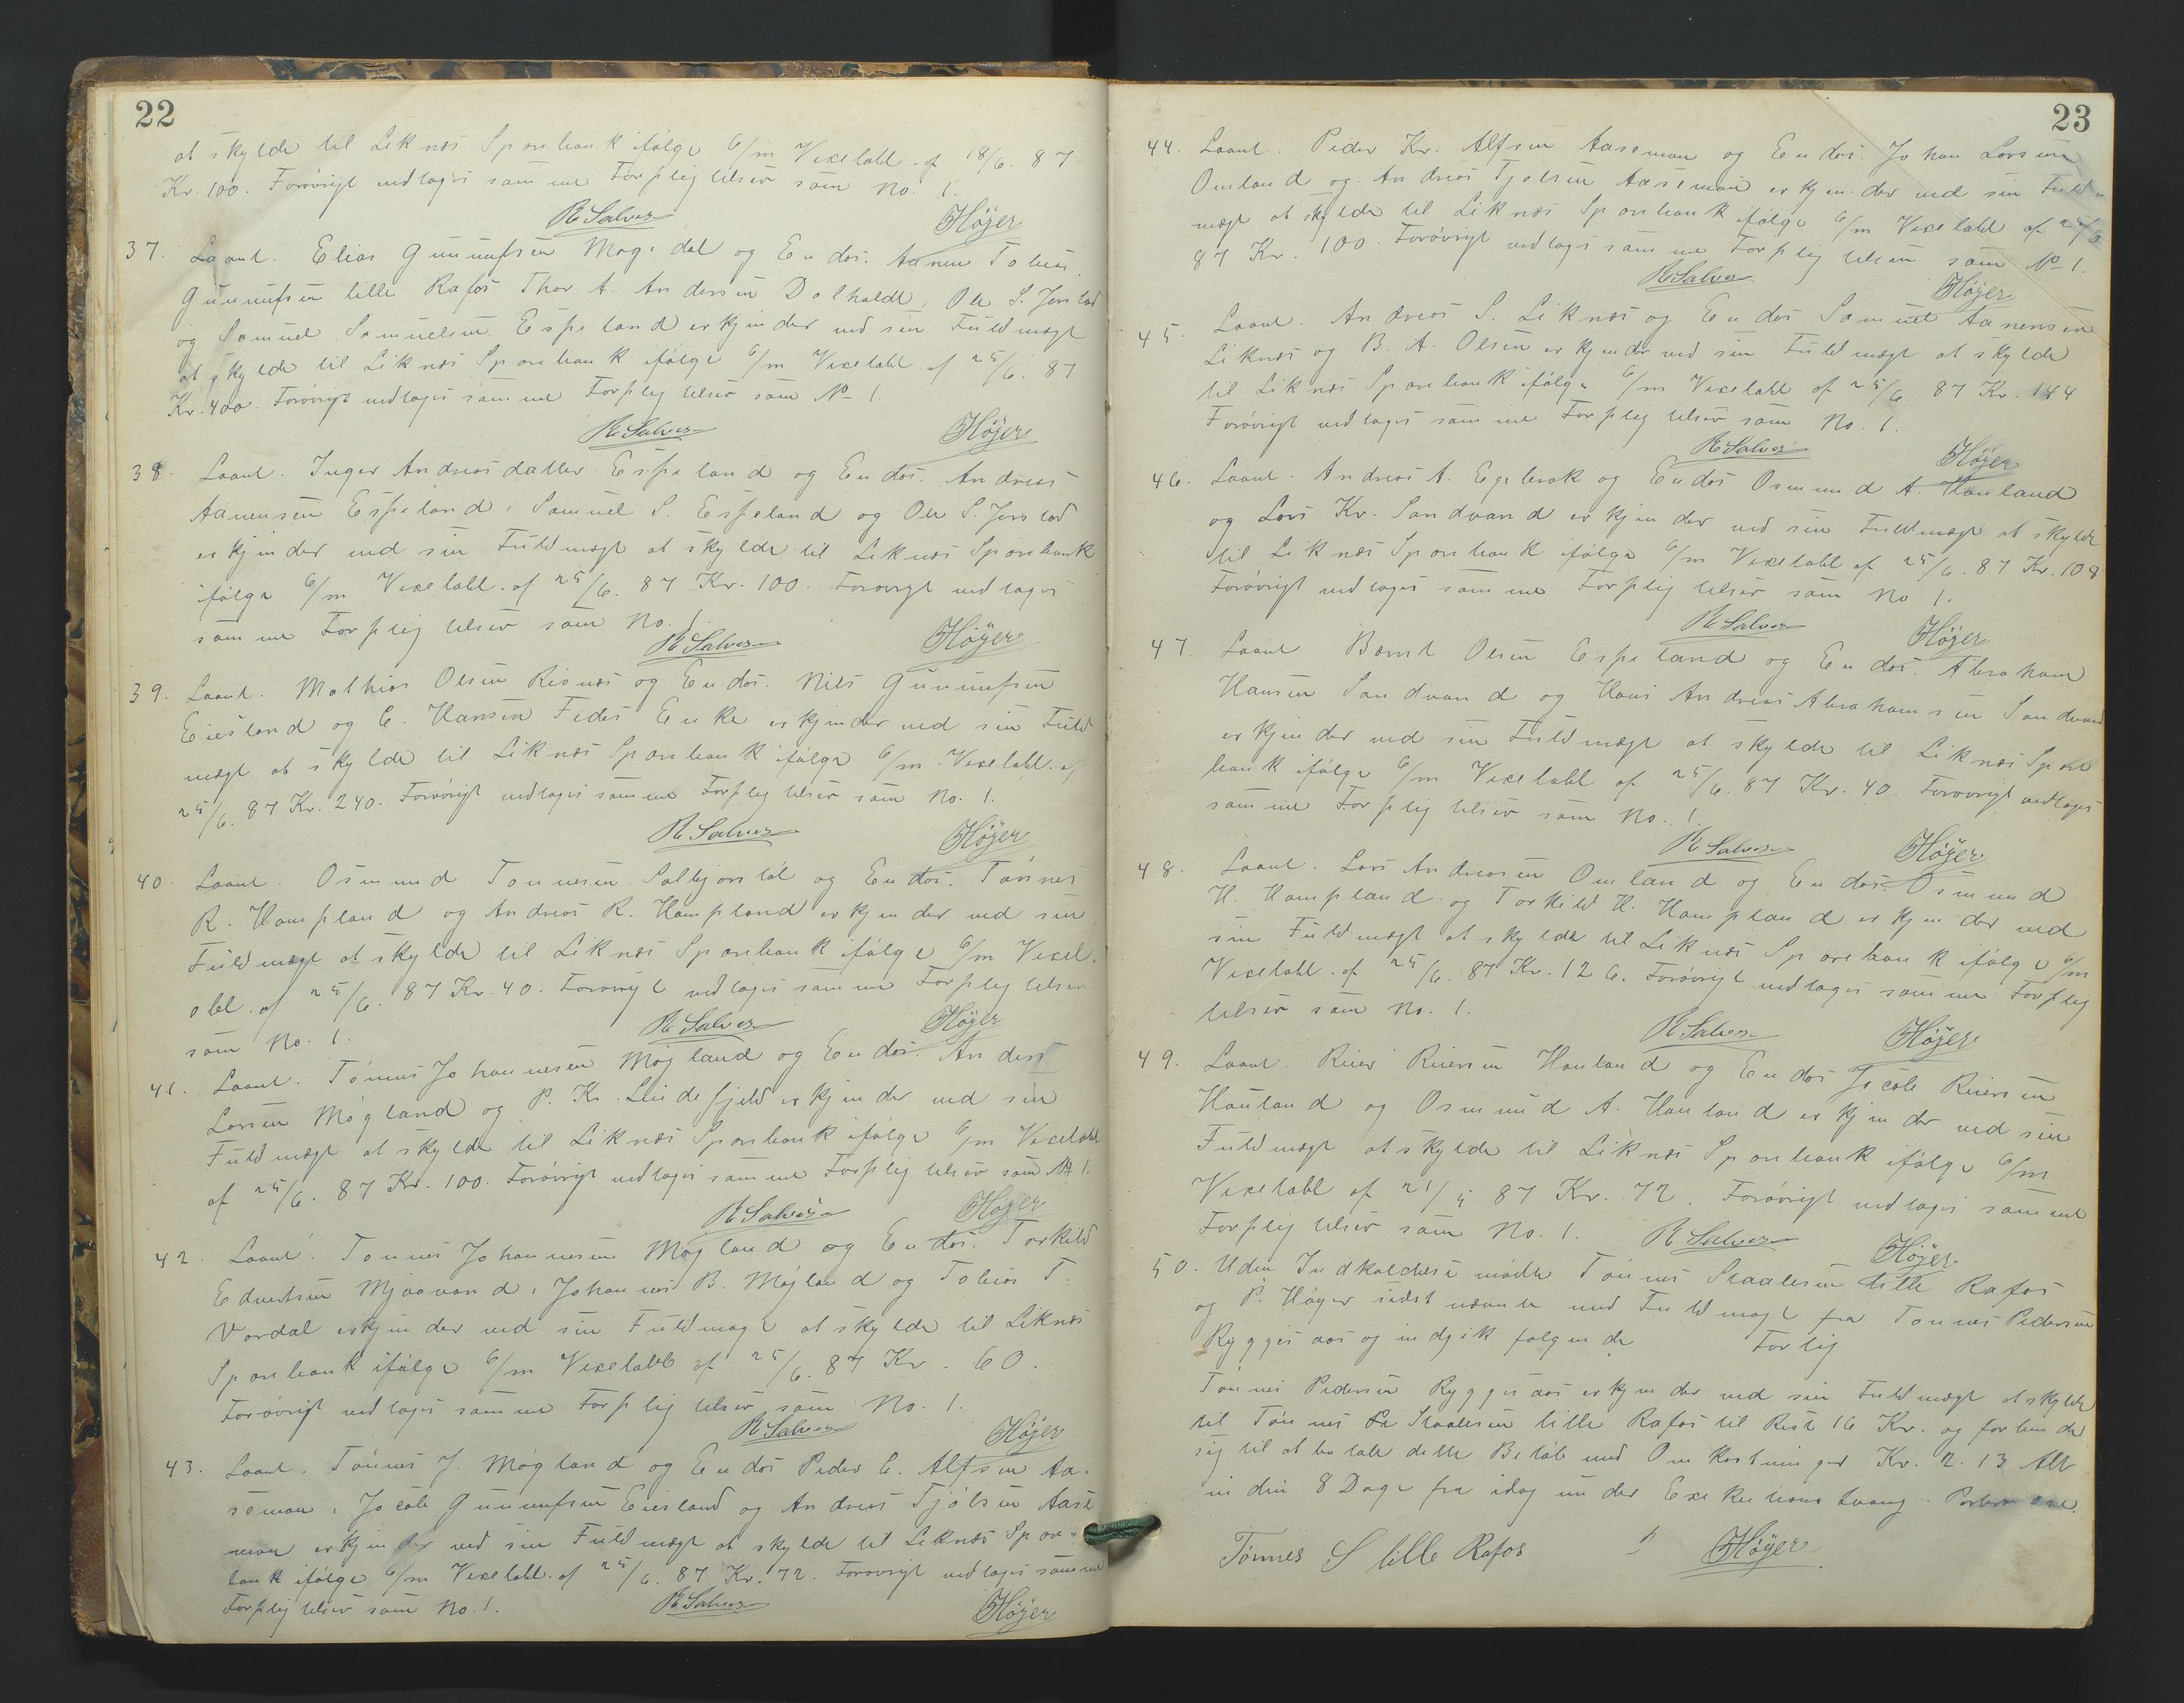 22
at skylde til Liknes Sparebank ifölge 6/m Vexelobl. af 18/6. 87
Kr. 100. Forövrigt vedtages samme Forpligtelser som No. 1.
R Salves Höyer
37. Laant. Elias Gunnufsen Mogedal og Endos. Aanen Tobias
Gunnufsen lille Rafos Thor A. Andersen Dalholdt, Ole S. Jerstad
og Samuel Samuelsen Espeland erkjender ved sin Fuldmægt
at skylde til Liknes Sparebank ifölge 6/m Vexelobl. af 25/6. 87
Kr. 400. Forövrigt vedtages samme Forpligtelser som No 1.
R Salves Höyer
38. Laant. Inger Andreasdatter Espeland og Endos. Andreas
Aanensen Espeland, Samuel S. Espeland og Ole S. Jerstad
erkjender ved sin Fuldmægt at skylde til Liknes Sparebank
ifölge 6/m Vexelobl. af 25/6. 87 Kr. 100. Forövrigt vedtages
samme Forpligtelser som No. 1.
R Salves Höyer
39. Laant. Mathias Olsen Risnes og Endos. Nils Gunnufsen
Eiesland og C. Hansen Fedes Enke erkjender ved sin Fuld
mægt at skylde til Liknes Sparebank ifölge 6/m Vexelobl. af
25/6. 87 Kr. 240. Forövrigt vedtages samme Forpligtelser som No. 1.
R Salves Höyer
40. Laant. Osmund Tonnesen Solbjorstöl og Endos. Tönnes
R. Hampland og Andreas R. Hampland erkjender ved sin
Fuldmægt at skylde til Liknes Sparebank ifölge 6/m Vexel.
obl. af 25/6. 87 Kr. 40. Forövrigt vedtages samme Forpligtelser
som No. 1.
R Salves Höyer
41. Laant. Tönnes Johannesen Mögland og Endos. Anders
Larsen Mögland og P. Kr. Lindefjeld erkjender ved sin
Fuldmægt at skylde til Liknes Sparebank ifölge 6/m Vexelobl
af 25/6. 87 Kr. 100. Forövrigt vedtages samme Forpligtelser som No 1.
R Salves Höyer
42. Laant. Tonnes Johannesen Mögland og Endos. Torkild
Edvartsen Mjaavand, Johannes B. Mögland og Tobias T.
Vordal erkjender ved sin Fuldmægt at skylde til Liknes
Sparebank ifölge 6/m Vexelobl af 25/6. 87 Kr. 60.
Forövrigt vedtages samme Forpligtelser som No. 1.
R Salves Höyer
43. Laant. Tönnes J. Mögland og Endos Peder C. Alfsen Aa.
seman, Jacob Gunnufsen Eiesland og Andreas Tjölsen Aase
man erkjender ved sin Fuldmægt at skylde til Liknes Spare
bank ifölge 6/m Vexelobl. af 25/6. 87 Kr. 72. Forövrigt vedtages samme
Forpligtelser som No. 1.
R Salves Höyer
23
44. Laant. Peder Kr. Alfsen Aaseman og Endos. Johan Larsen
Omland og Andreas Tjolsen Aaseman erkjender ved sin Fuld
mægt at skylde til Liknes Sparebank ifölge 6/m Vexelobl af 25/6
87 Kr. 100. Forövrigt vedtages samme Forpligtelser som No 1.
R Salves Höyer
45. Laant. Andreas S. Liknes og Endos Samuel Aanensen
Liknes og B. A. Olsen erkjender ved sin Fuldmægt at skylde
til Liknes Sparebank ifölge 6/m Vexelobl af 25/6. 87 Kr. 144
Forövrigt vedtages samme Forpligtelser som No. 1.
R Salves Höyer
46. Laant. Andreas A. Egebrok og Endos Osmund A. Hauland
og Lars Kr. Sandvand erkjender ved sin Fuldmægt at skylde
til Liknes Sparebank ifölge 6/m Vexelobl af 25/6. 87 Kr. 108
Forövrigt vedtages samme Forpligtelser som No. 1.
R Salves Höyer
47. Laant Bernt Olsen Espeland og Endos. Abraham
Hansen Sandvand og Hans Andreas Abrahamsen Sandvand
erkjender ved sin Fuldmægt at skylde til Liknes Spare
bank ifölge 6/m Vexelobl af 25/6. 87 Kr. 40. Forövrigt vedtages
samme Forpligtelser som No. 1.
R Salves Höyer
48. Laant. Lars Andreasen Omland og Endos. Osmund
H. Hampland og Torkild H. Hampland erkjender ved
sin Fuldmægt at skylde til Liknes Sparebank ifölge 6/m
Vexelobl. af 25/6. 87 Kr. 126. Forövrigt vedtages samme Forplig
telser som No. 1.
R Salves Höyer
49. Laant. Reier Reiersen Hauland og Endos Jacob Reiersen
Hauland og Osmund A. Hauland erkjender ved sin
Fuldmægt at skylde til Liknes Sparebank ifölge 6/m
Vexelobl af 21/5 87 Kr. 72. Forövrigt vedtages samme
Forpligtelser som No. 1.
R Salves Höyer
50. Uden Indkaldelse mödte Tönnes Staalesen lille Rafos
og P. Höyer sidst nævnte med Fuldmagt fra Tönnes Pedersen
Ryggjes aas og indgik fölgende Forlig
Tönnes Pedersen Ryggjes aas erkjender ved sin Fuldmægt at skylde
til Tönnes Staalesen lille Rafos til Rest 16 Kr. og forbinder
sig til at betale dette Belöb med Omkostninger Kr. 2.13 Alt
inden 8 Dage fra idag under Exekutions tvang.
Tönnes S lille Rafos Höyer